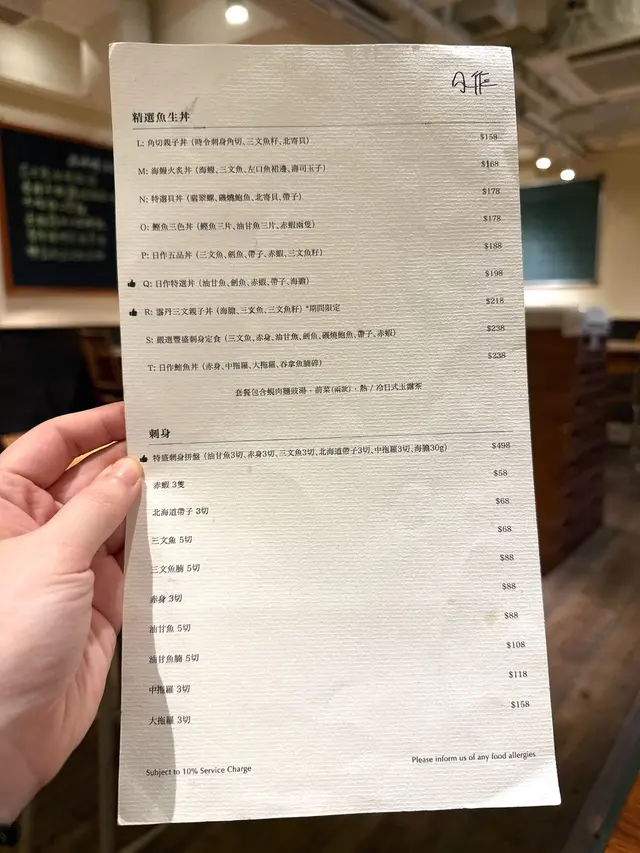 日作
精選魚生丼
L: 角切親子丼 (時令刺身角切、三文魚籽、北寄貝) $158
M: 海鰻火炙丼 (海鰻、三文魚、左口魚裙邊、壽司玉子) $168
N: 特選貝丼 (翡翠螺、磯燒鮑魚、北寄貝、帶子) $178
O: 鰹魚三色丼 (鰹魚三片、油甘魚三片、赤蝦兩隻) $178
P: 日作五品丼 (三文魚、劍魚、帶子、赤蝦、三文魚籽) $188
Q: 日作特選丼 (油甘魚、劍魚、赤蝦、帶子、海膽) $198
R: 雲丹三文親子丼 (海膽、三文魚、三文魚籽) *期間限定 $218
S: 嚴選豐盛刺身定食 (三文魚、赤身、油甘魚、劍魚、磯燒鮑魚、帶子、赤蝦) $238
T: 日作鮪魚丼 (赤身、中拖羅、大拖羅、吞拿魚腩碎) $238
套餐包含蜆肉麵豉湯、前菜(兩款)、熱 / 冷日式玄謂茶
刺身
特盛刺身拼盤 (油甘魚3切、赤身3切、三文魚3切、北海道帶子3切、中拖羅3切、海膽30g) $498
赤蝦 3隻 $58
北海道帶子 3切 $68
三文魚 5切 $68
三文魚腩 5切 $88
赤身 3切 $88
油甘魚 5切 $88
油甘魚腩 5切 $108
中拖羅 3切 $118
大拖羅 3切 $158
Subject to 10% Service Charge
Please inform us of any food allergies